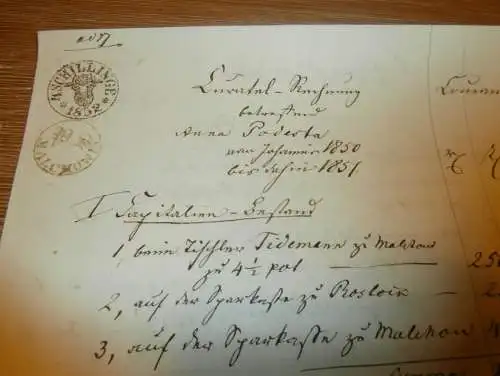 ad 57.
4 SCHILLINGE
1852
Curatel-Rechnung Couran
betreffend
Anna Podesta
von Johannis 1850
bis dahin 1851
I Capitalien-Bestand
1, beim Tischler Tidemann zu Malchow
zu 4½ pct 250
2, auf der Sparkasse zu Rostock — 2
3, auf der Sparkasse zu Malchow